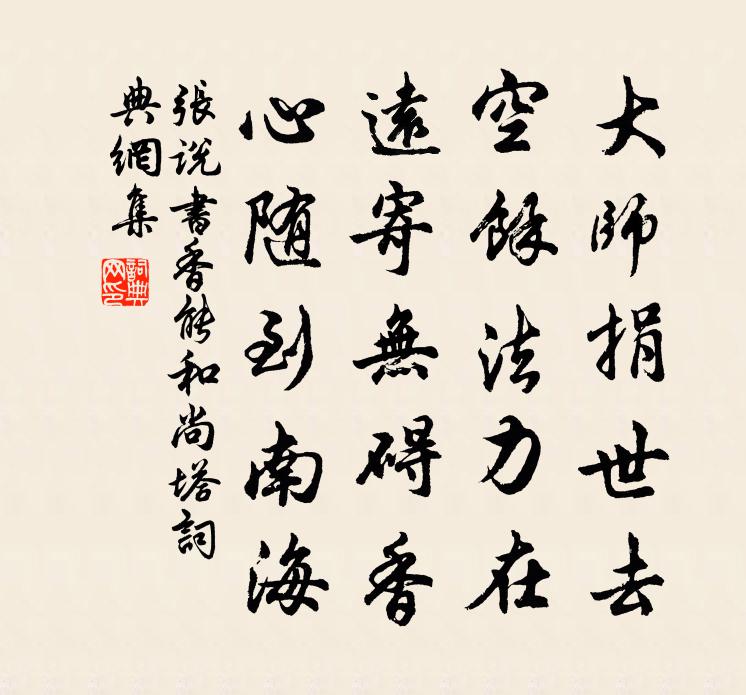 大師捐世去
空餘法力在
遠寄無碍香
心随到南海
張説書香能和尚塔詞
典網集
詞典網印